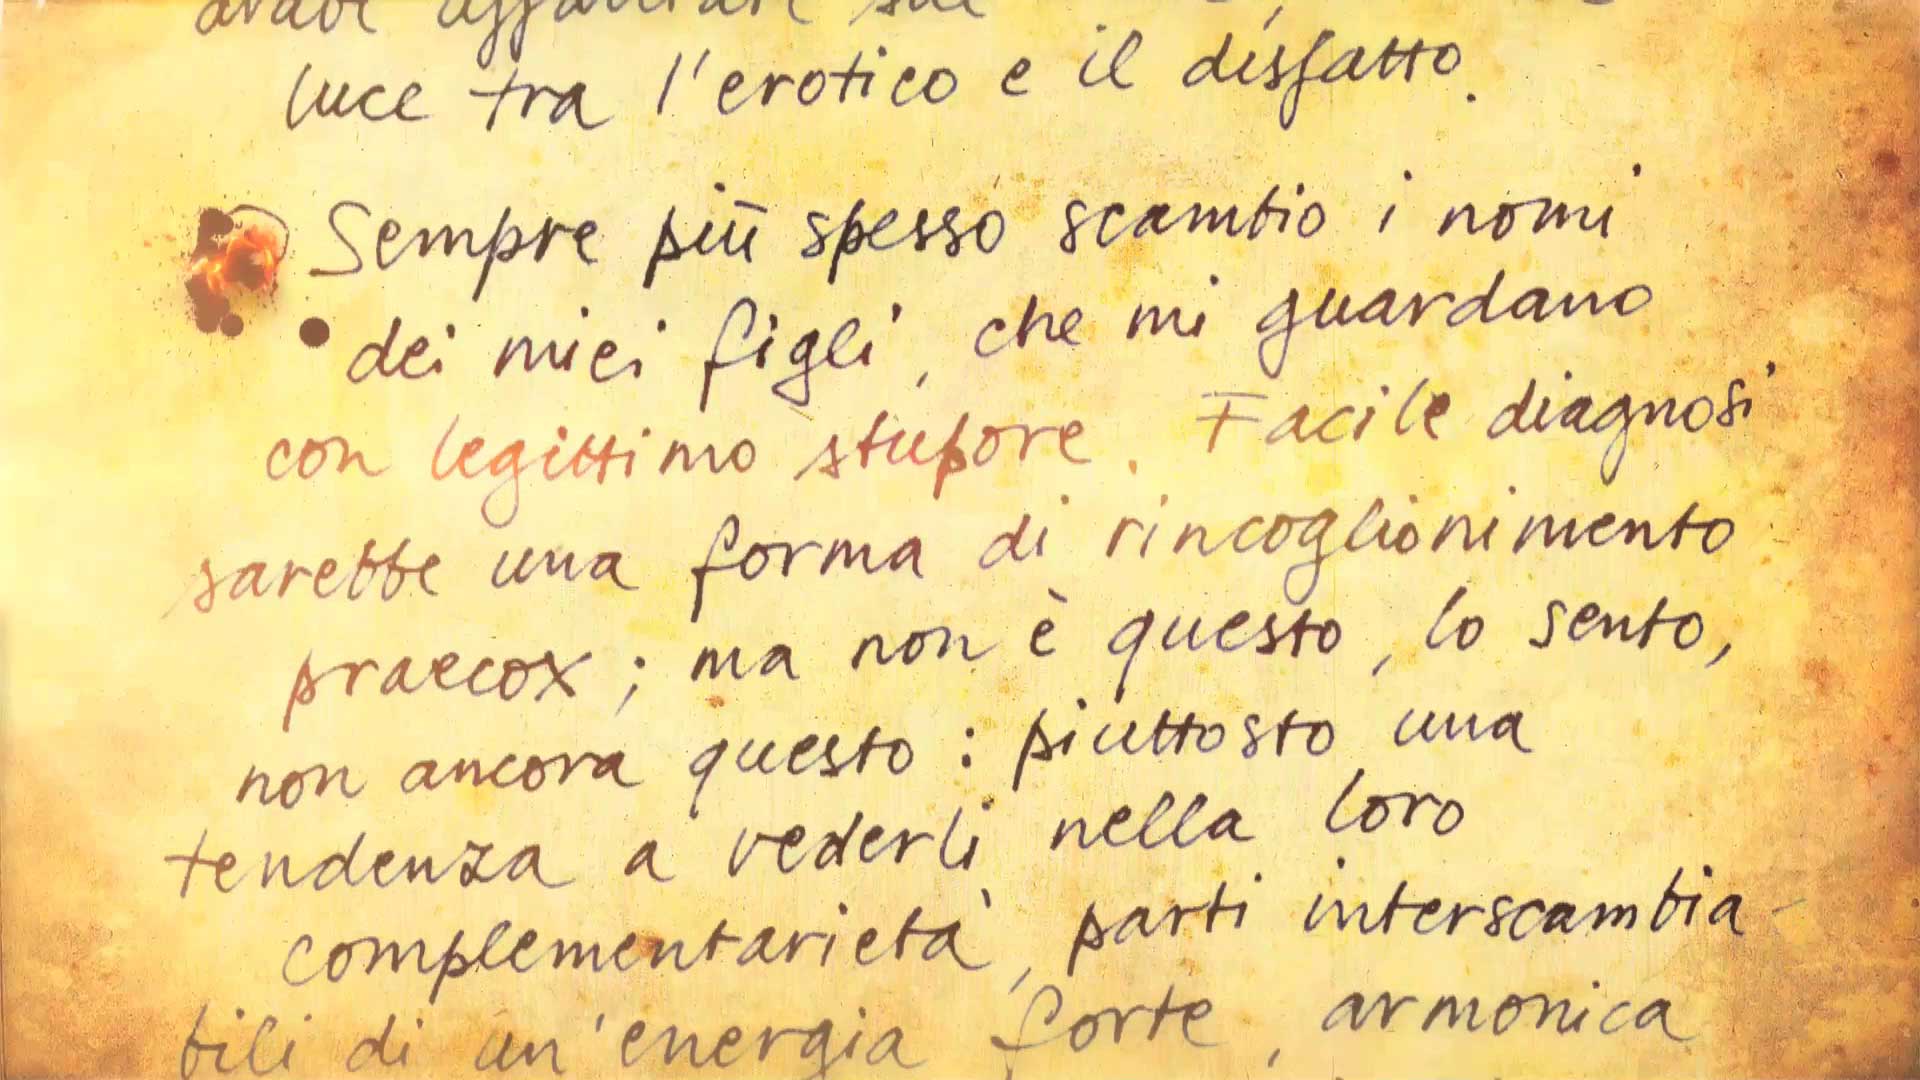 luce tra l'erotico e il disfatto.
Sempre più spesso scambio i nomi
dei miei figli, che mi guardano
con legittimo stupore. Facile diagnosi
sarebbe una forma di rincoglionimento
praecox; ma non è questo, lo sento,
non ancora questo: piuttosto una
tendenza a vederli nella loro
complementarietà, parti interscambia-
bili di un'energia forte, armonica